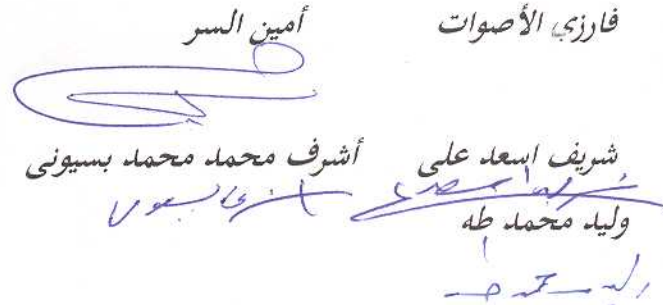 فارزي الأصوات أمين السر
شريف اسعد على أشرف محمد محمد بسيونى
وليد محمد طه